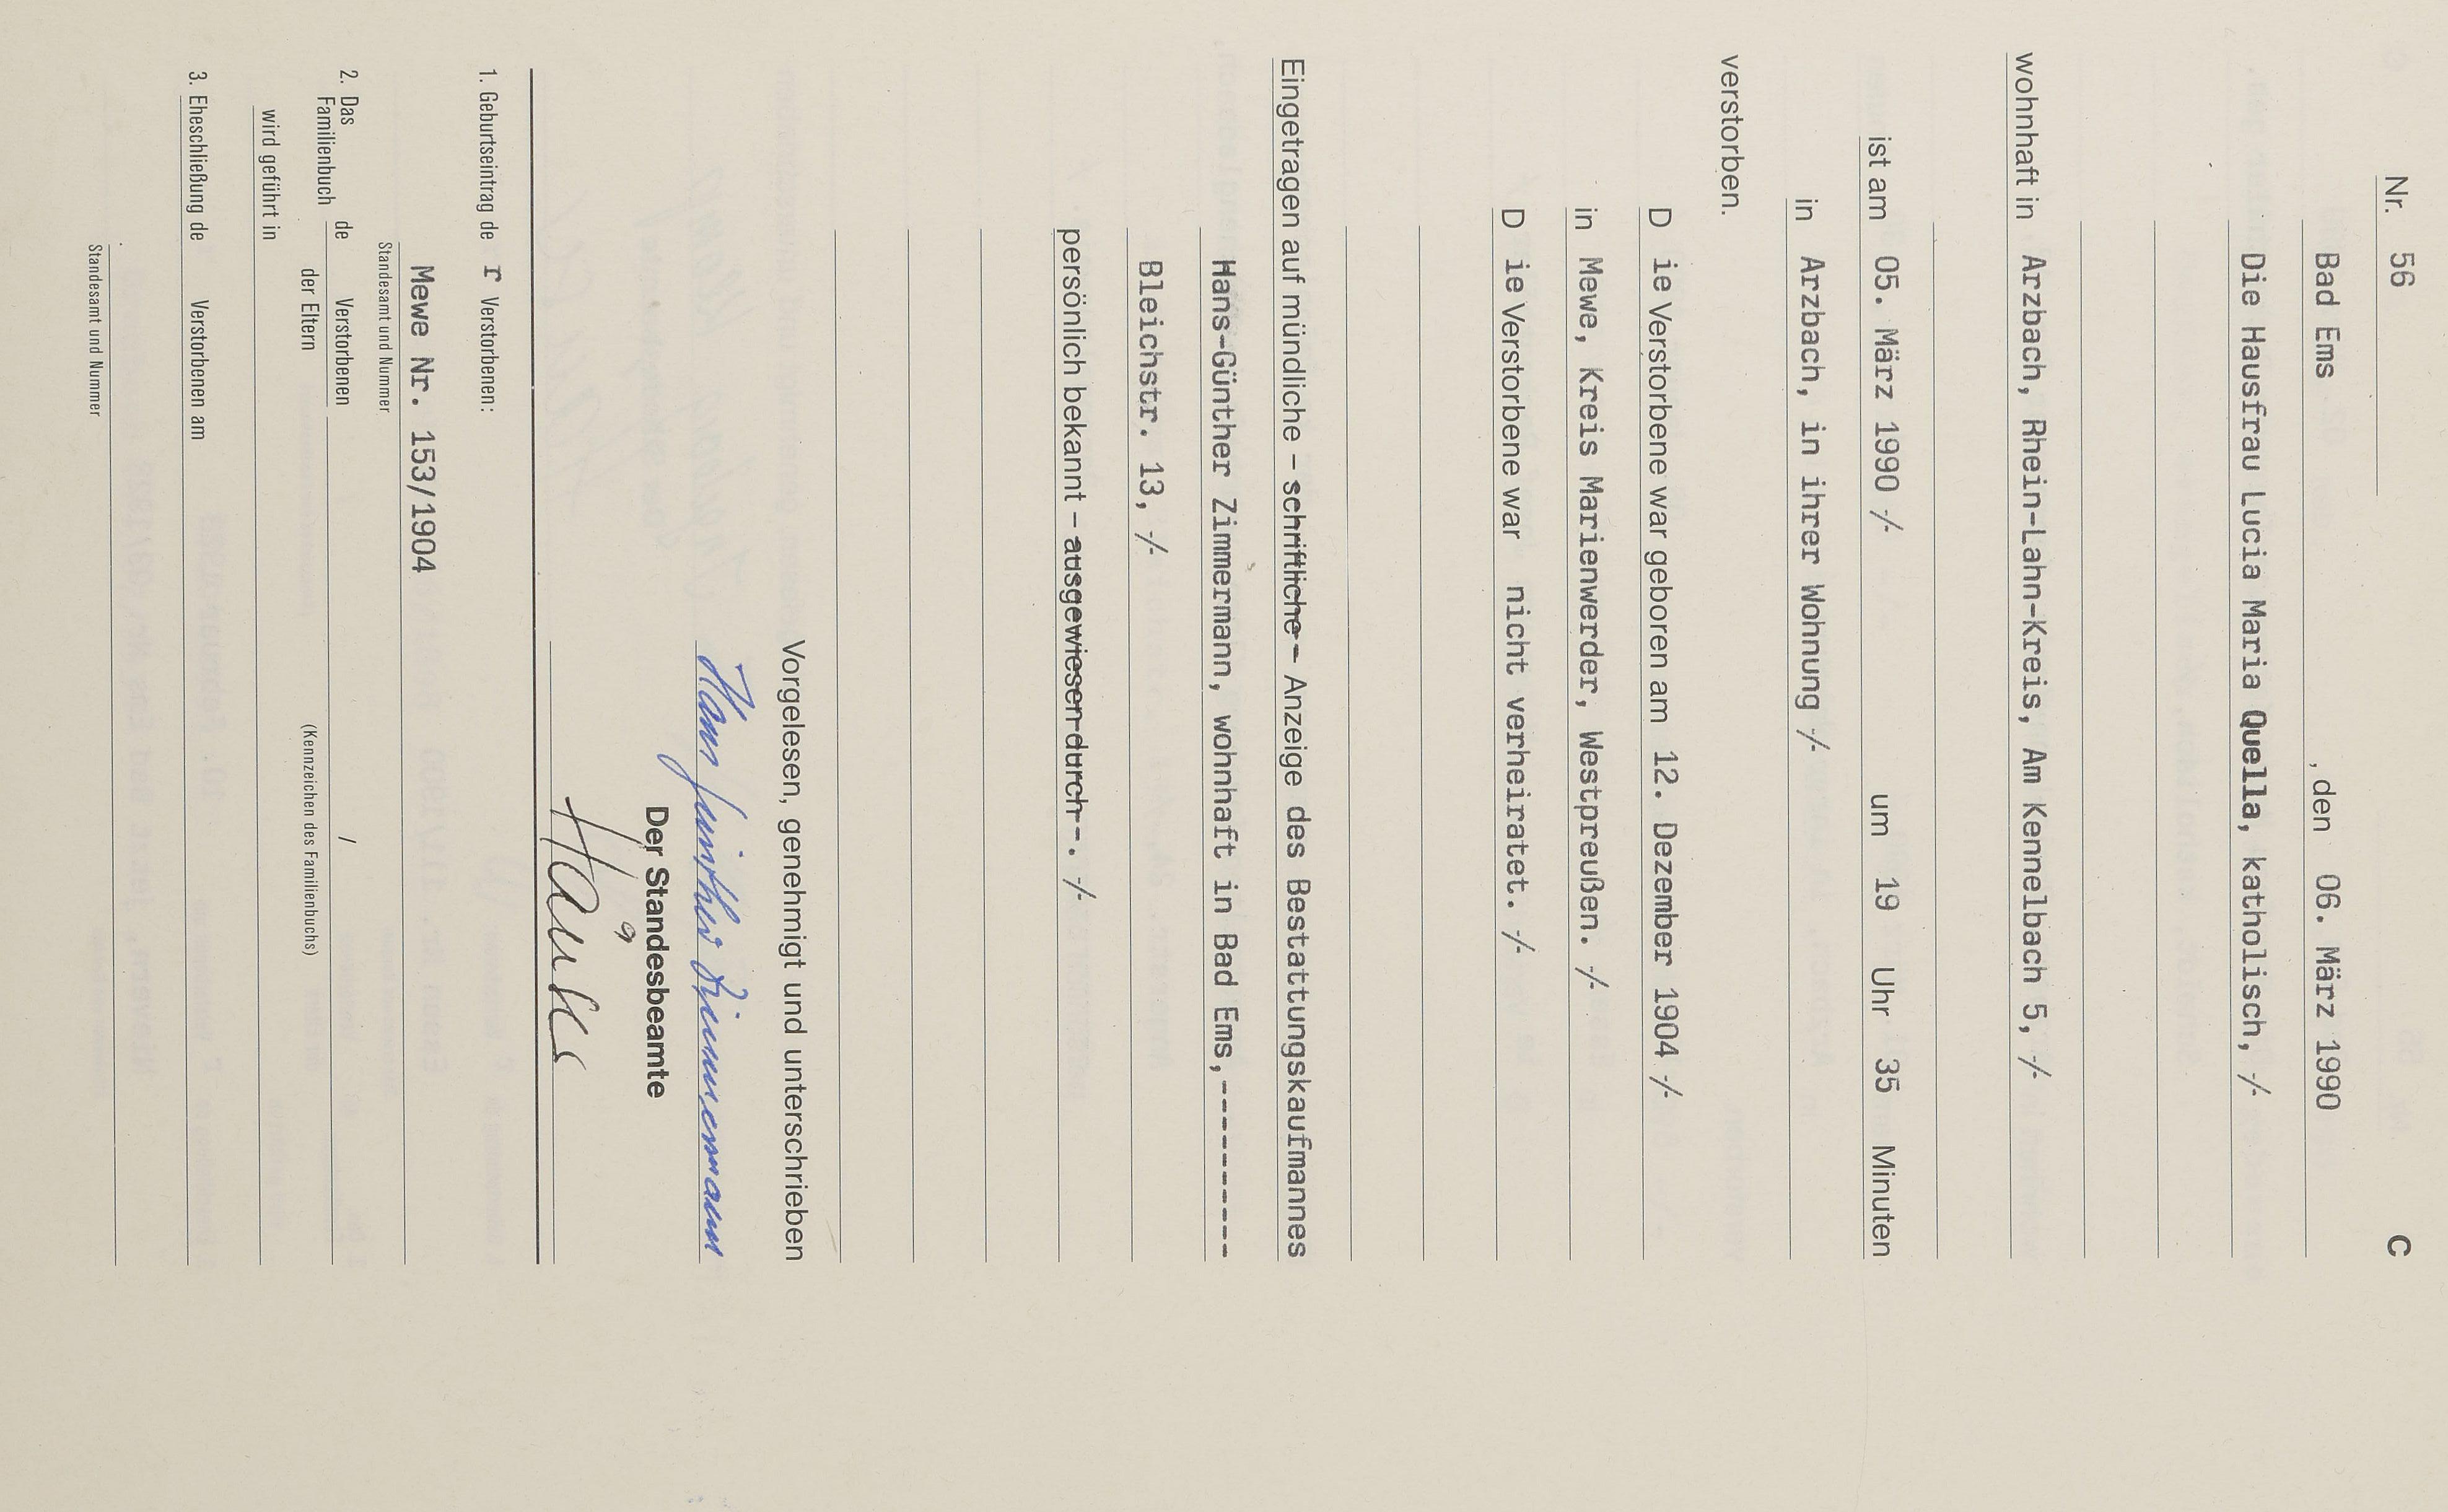 Nr. 56 C
Bad Ems , den 06. März 1990
Die Hausfrau Lucia Maria Quella, katholisch, -/-
wohnhaft in Arzbach, Rhein-Lahn-Kreis, Am Kennelbach 5, -/-
ist am 05. März 1990 -/- um 19 Uhr 35 Minuten
in Arzbach, in ihrer Wohnung -/-
verstorben.
D ie Verstorbene war geboren am 12. Dezember 1904 -/-
in Mewe, Kreis Marienwerder, Westpreußen. -/-
D ie Verstorbene war nicht verheiratet. -/-
Eingetragen auf mündliche – schriftliche – Anzeige des Bestattungskaufmannes
Hans-Günther Zimmermann, wohnhaft in Bad Ems,----------
Bleichstr. 13, -/-
persönlich bekannt – ausgewiesen durch - . -/-
Vorgelesen, genehmigt und unterschrieben
Hans Günther Zimmermann
Der Standesbeamte
1. Geburtseintrag de r Verstorbenen:
Mewe Nr. 153/1904
Standesamt und Nummer
2. Das Familienbuch de Verstorbenen /
der Eltern (Kennzeichen des Familienbuchs)
wird geführt in
3. Eheschließung de Verstorbenen am
Standesamt und Nummer